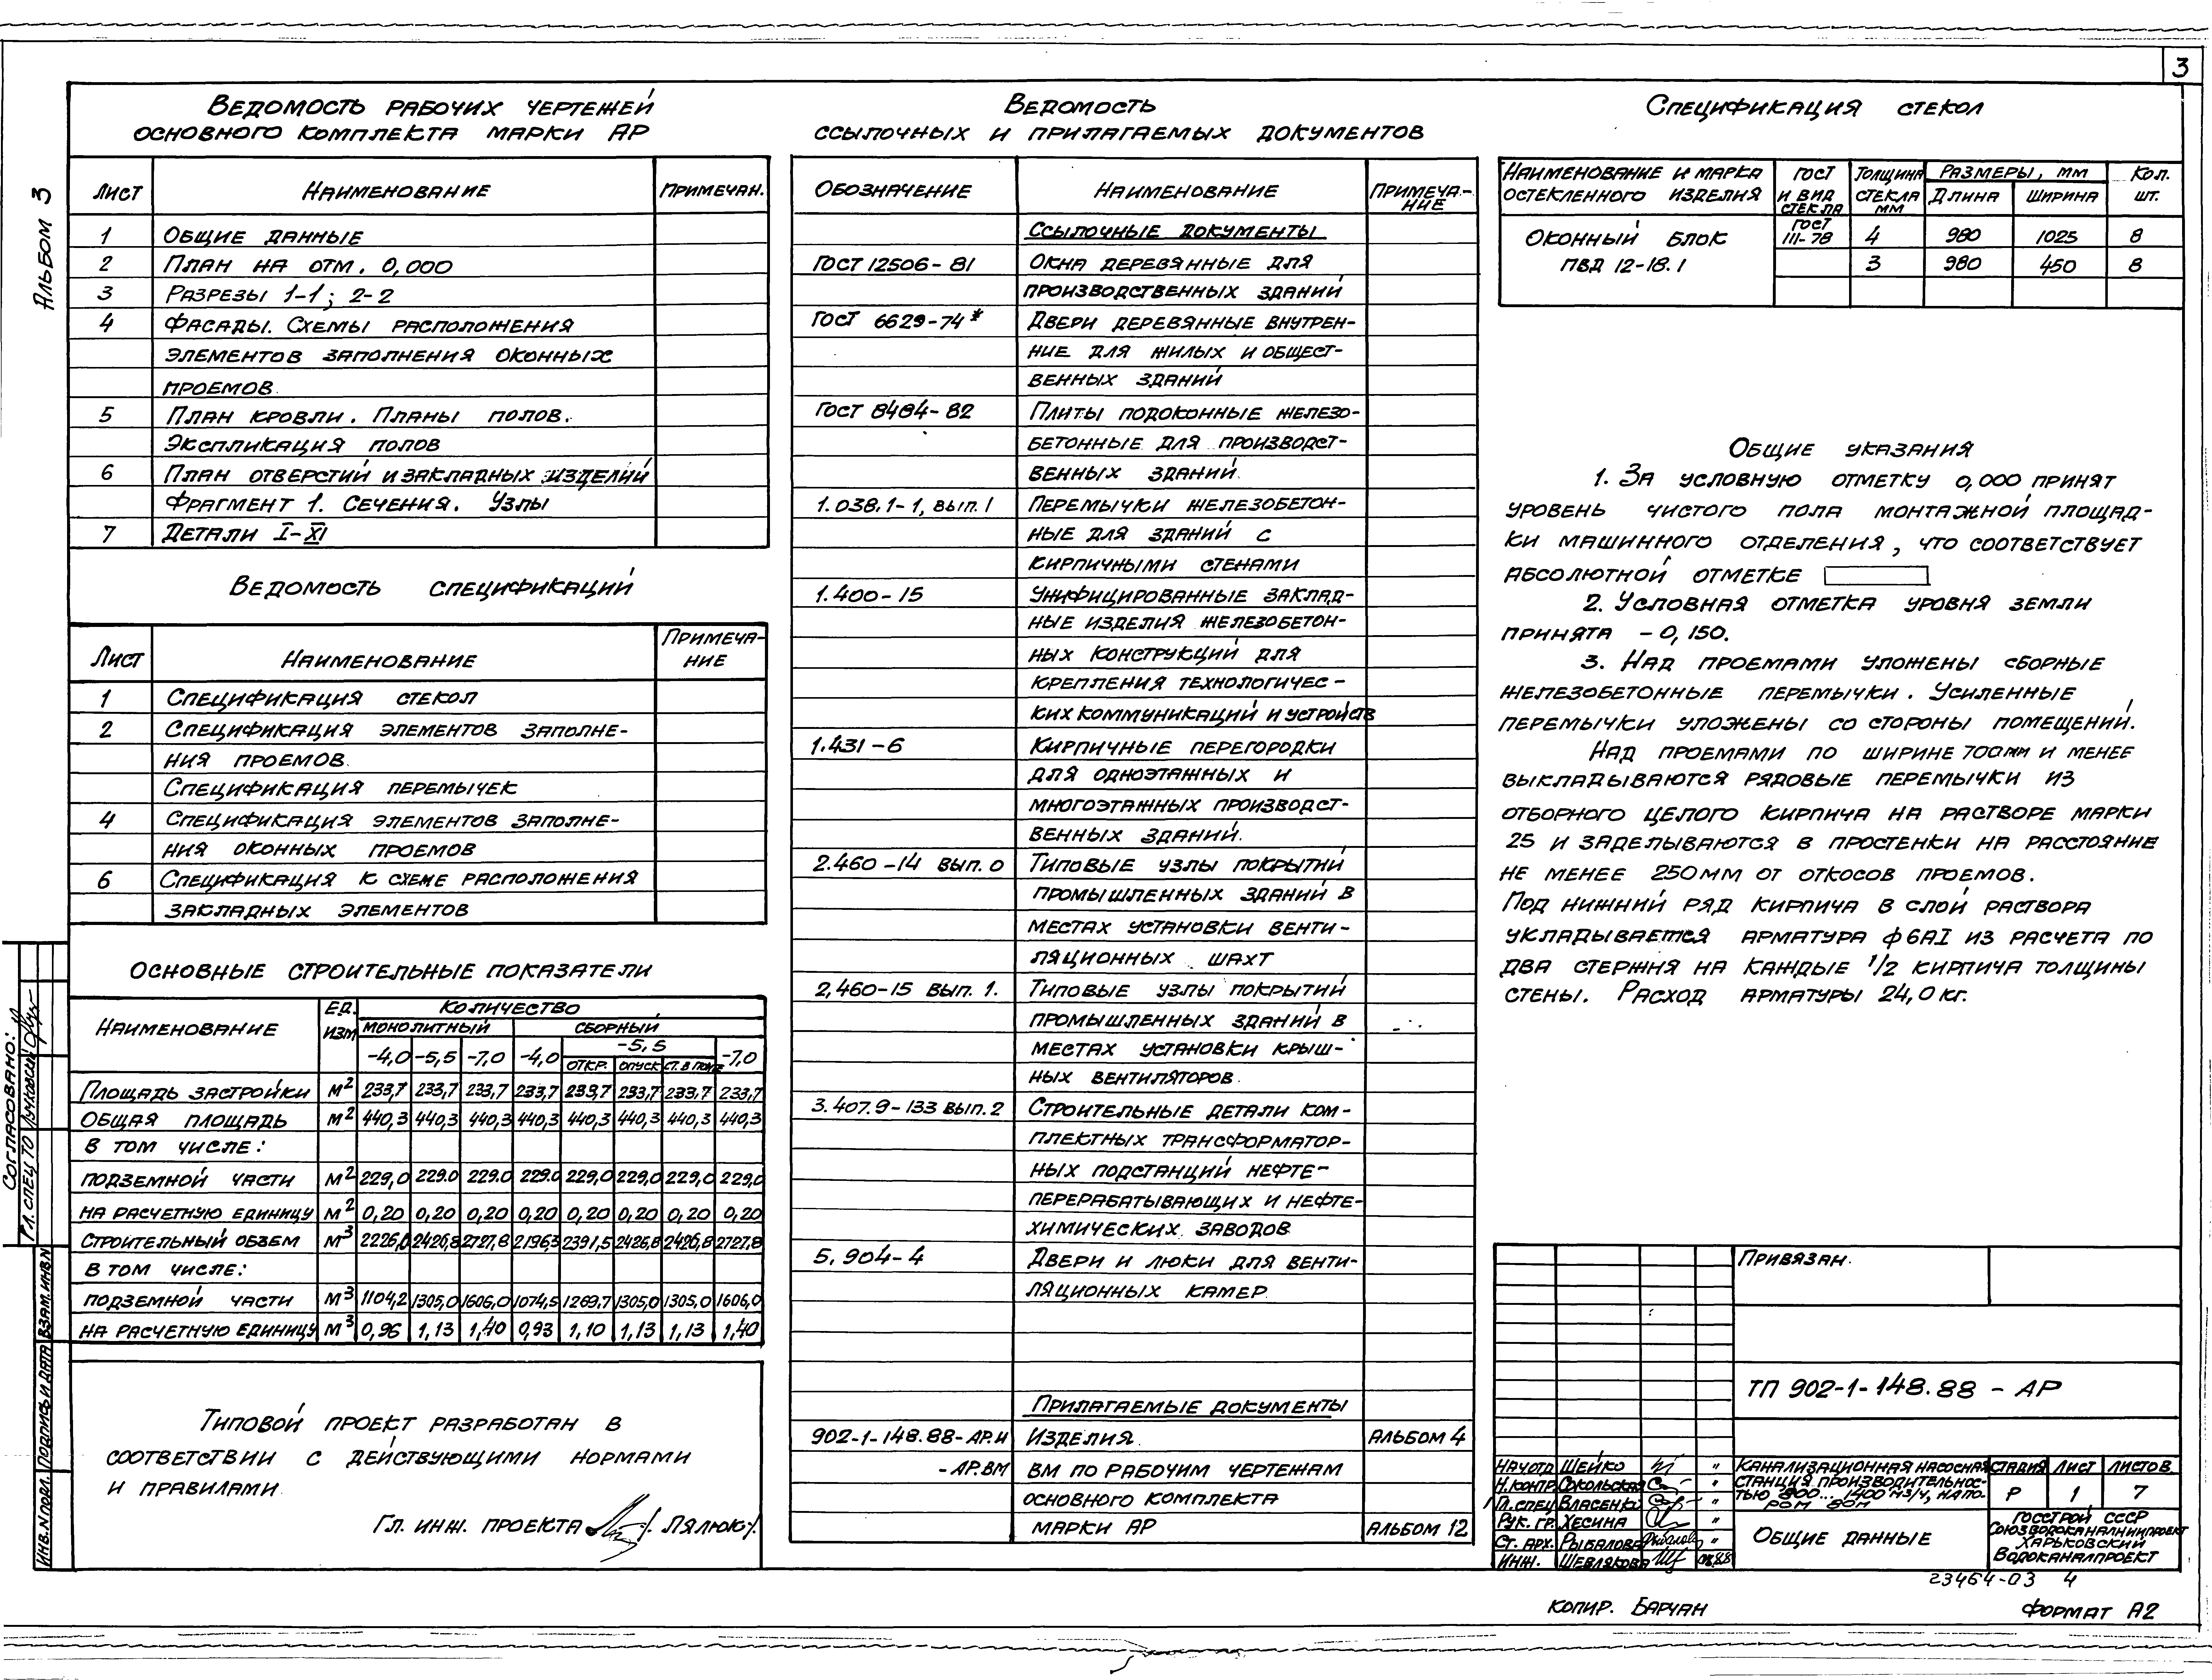 3
Альбом 3
Ведомость рабочих чертежей
основного комплекта марки АР
Лист Наименование Примечан.
1 Общие данные
2 План на отм. 0,000
3 Разрезы 1-1; 2-2
4 Фасады. Схемы расположения
элементов заполнения оконных
проемов.
5 План кровли. Планы полов.
Экспликация полов
6 План отверстий и закладных изделий
Фрагмент 1. Сечения. Узлы
7 Детали I-XI
Ведомость спецификаций
Лист Наименование Примеча-
ние
1 Спецификация стекол
2 Спецификация элементов заполне-
ния проемов.
Спецификация перемычек
4 Спецификация элементов заполне-
ния оконных проемов
6 Спецификация к схеме расположения
закладных элементов
Основные строительные показатели
Наименование Ед. изм Количество
монолитный сборный
-4,0 -5,5 -7,0 -4,0 -5,5 -7,0
откр. опуск ст. в
Площадь застройки м2 233,7 233,7 233,7 233,7 233,7 233,7 233,7 233,7
Общая площадь м2 440,3 440,3 440,3 440,3 440,3 440,3 440,3 440,3
в том числе:
подземной части м2 229,0 229.0 229.0 229.0 229,0 229,0 229,0 229,0
на расчетную единицу м2 0,20 0,20 0,20 0,20 0,20 0,20 0,20 0,20
Строительный объем м3 2226,0 2426,8 2727,8 2196,3 2391,5 2426,8 2426,8 2727,8
в том числе:
подземной части м3 1104,2 1305,0 1606,0 1074,5 1269,7 1305,0 1305,0 1606,0
на расчетную единицу м3 0,96 1,13 1,40 0,93 1,10 1,13 1,13 1,40
Типовой проект разработан в
соответствии с действующими нормами
и правилами
Гл. инж. проекта /. Лялюк/.
Согласовано:
Гл. спец ТО
Инв.N подл. Подпись и дата Взам. инв.N
Ведомость
ссылочных и прилагаемых документов
Обозначение Наименование Примеча-
ние
Ссылочные документы
ГОСТ 12506-81 Окна деревянные для
производственных зданий
ГОСТ 6629-74* Двери деревянные внутрен-
ние для жилых и общест-
венных зданий
ГОСТ 8484-82 Плиты подоконные железо-
бетонные для производст-
венных зданий.
1.038.1-1, вып.1 Перемычки железобетон-
ные для зданий с
кирпичными стенами
1.400-15 Унифицированные заклад-
ные изделия железобетон-
ных конструкций для
крепления технологичес-
ких коммуникаций и устройств
1.431-6 Кирпичные перегородки
для одноэтажных и
многоэтажных производст-
венных зданий.
2.460-14 вып. 0 Типовые узлы покрытий
промышленных зданий в
местах установки венти-
ляционных шахт
2,460-15 вып. 1. Типовые узлы покрытий
промышленных зданий в
местах установки крыш-
ных вентиляторов.
3.407.9-133 вып.2 Строительные детали ком-
плектных трансформатор-
ных подстанций нефте-
перерабатывающих и нефте-
химических заводов
5.904-4 Двери и люки для венти-
ляционных камер
Прилагаемые документы
902-1-148.88-АР.И Изделия. Альбом 4
-АР.ВМ ВМ по рабочим чертежам
основного комплекта
марки АР Альбом 12
Спецификация стекол
Наименование и марка остекленного изделия ГОСТ и вид стекла Толщина стекла мм Размеры, мм Кол. шт.
Длина Ширина
Оконный блок ГОСТ 111-78 4 980 1025 8
ПВД 12-18.1 3 980 450 8
Общие указания
1. За условную отметку 0,000 принят
уровень чистого пола монтажной площад-
ки машинного отделения, что соответствует
абсолютной отметке
2. Условная отметка уровня земли
принята -0,150.
3. Над проемами уложены сборные
железобетонные перемычки. Усиленные
перемычки уложены со стороны помещений.
Над проемами по ширине 700мм и менее
выкладываются рядовые перемычки из
отборного целого кирпича на растворе марки
25 и заделываются в простенки на расстояние
не менее 250мм от откосов проемов.
Под нижний ряд кирпича в слой раствора
укладывается арматура ф6АI из расчета по
два стержня на каждые 1/2 кирпича толщины
стены. Расход арматуры 24,0 кг.
Привязан.
ТП 902-1-148.88 - АР
Нач.отд Шейко "
Н.контр. Сокольская "
Гл.спец Власенко "
Рук. гр. Хесина "
Ст. арх. Рыбалова "
Инж. Шевлякова 04.88
Канализационная насосная
станция производительнос-
тью 800...1400 м3/ч, напо-
ром 80м
Стадия Лист Листов
Р 1 7
Общие данные
Госстрой СССР
Союзводоканалниипроект
Харьковский
Водоканалпроект
23464-03 4
Копир. Барчан
Формат А2